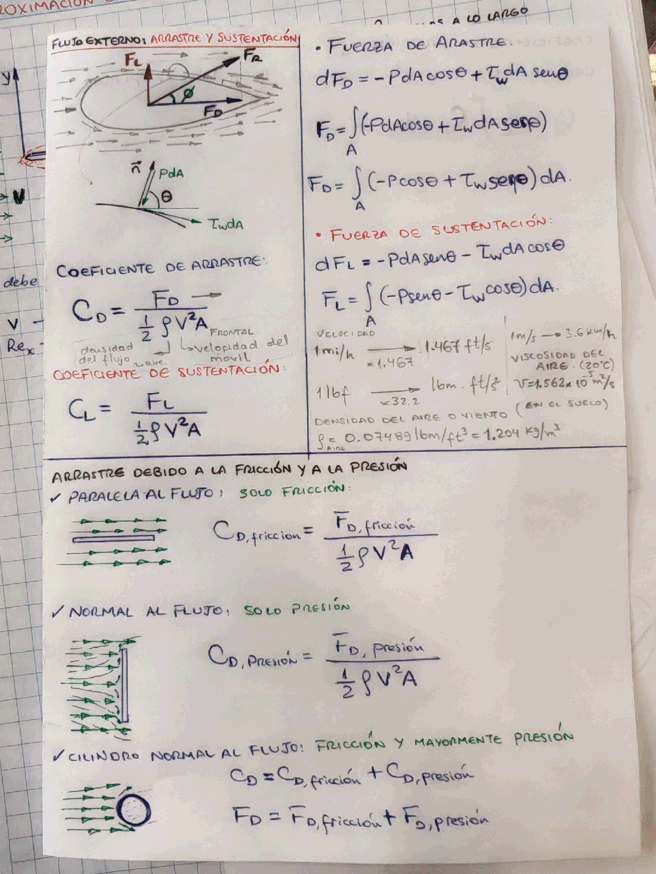 ROXIMACIÓN
A LO LARGO
FLUJO EXTERNO: ARRASTRE Y SUSTENTACIÓN
F_L
F_R
φ
F_D
n
PdA
θ
τ_w dA
COEFICIENTE DE ARRASTRE:
C_D = F_D / (1/2 ρV²A)
FRONTAL
densidad del flujo
aire
velocidad del móvil
COEFICIENTE DE SUSTENTACIÓN:
C_L = F_L / (1/2 ρV²A)
• FUERZA DE ARASTRE:
dF_D = -PdA cosθ + τ_w dA senθ
F_D = ∫_A (-PdAcosθ + τ_w dA senθ)
F_D = ∫_A (-Pcosθ + τ_w senθ) dA.
• FUERZA DE SUSTENTACIÓN:
dF_L = -PdA senθ - τ_w dA cosθ
F_L = ∫_A (-Psenθ - τ_w cosθ) dA.
VELOCIDAD
1 mi/h → 1.467 ft/s
×1.467
1 lbf → lbm. ft/s²
×32.2
1m/s → 3.6 km/h
VISCOSIDAD DEL
AIRE. (20°C)
V=1.562x10⁻⁵ m²/s
DENSIDAD DEL AIRE O VIENTO (EN EL SUELO)
ρ_aire = 0.07489 lbm/ft³ = 1.204 kg/m³
ARRASTRE DEBIDO A LA FRICCIÓN Y A LA PRESIÓN
✓ PARALELA AL FLUJO: SOLO FRICCIÓN:
C_D,friccion = F_D,fricción / (1/2 ρV²A)
✓ NORMAL AL FLUJO: SOLO PRESIÓN
C_D,PRESIÓN = F_D, presión / (1/2 ρV²A)
✓ CILINDRO NORMAL AL FLUJO: FRICCIÓN Y MAYORMENTE PRESIÓN
C_D = C_D,fricción + C_D,presión
F_D = F_D,fricción + F_D,presión
y
V
debe
V -
Re_x